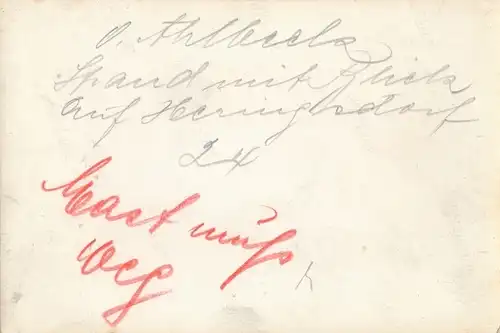 o. Ahlbeck
Strand mit Blick
auf Heringsdorf
24
Mast muß
weg